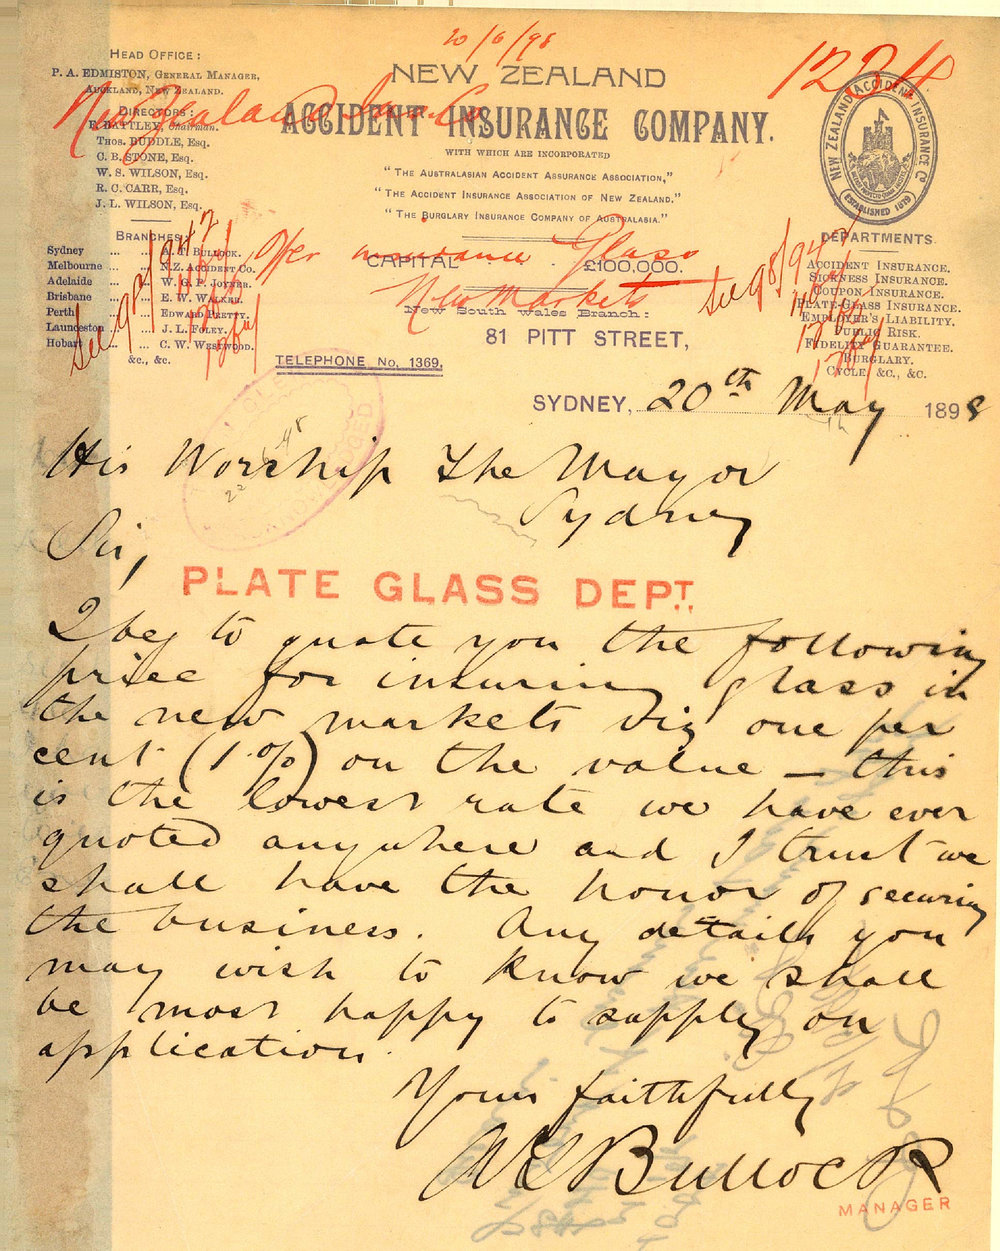 20/6/98
1234
New Zealand Ins. Co
HEAD OFFICE:
P. A. EDMISTON, GENERAL MANAGER,
AUCKLAND, NEW ZEALAND.
DIRECTORS:
E. BATTLEY, Chairman.
THOS. BUDDLE, ESQ.
C. B. STONE, ESQ.
W. S. WILSON, ESQ.
R. C. CARR, ESQ.
J. L. WILSON, ESQ.
BRANCHES:
Sydney ... ... G. T. BULLOCK.
Melbourne ... ... N.Z. ACCIDENT CO.
Adelaide ... ... W. G. P. JOYNER.
Brisbane ... ... E. W. WALKER.
Perth ... ... EDWARD PRETTY.
Launceston ... ... J. L. FOLEY.
Hobart ... ... C. W. WESTWOOD.
&c., &c.
NEW ZEALAND
ACCIDENT INSURANCE COMPANY.
WITH WHICH ARE INCORPORATED
"THE AUSTRALASIAN ACCIDENT ASSURANCE ASSOCIATION,"
"THE ACCIDENT INSURANCE ASSOCIATION OF NEW ZEALAND."
"THE BURGLARY INSURANCE COMPANY OF AUSTRALASIA."
CAPITAL - £100,000.
Offer insurance Glass
New Markets
New South Wales Branch:
81 PITT STREET,
TELEPHONE No. 1369.
NEW ZEALAND ACCIDENT INSURANCE Co
ESTABLISHED 1879
DEPARTMENTS
ACCIDENT INSURANCE.
SICKNESS INSURANCE.
COUPON INSURANCE.
PLATE-GLASS INSURANCE.
EMPLOYER'S LIABILITY.
PUBLIC RISK.
FIDELITY GUARANTEE.
BURGLARY.
CYCLE &c., &c.
See 98/942
See 98/942
SYDNEY, 20th May 1898
His Worship The Mayor
Sydney
Sir,
PLATE GLASS DEPT.
I beg to quote you the following
price for insuring glass in
the new markets viz one per
cent (1 %) on the value — this
is the lowest rate we have ever
quoted anywhere and I trust we
shall have the honor of securing
the business. Any details you
may wish to know we shall
be most happy to supply on
application.
Yours faithfully
Bullock
MANAGER